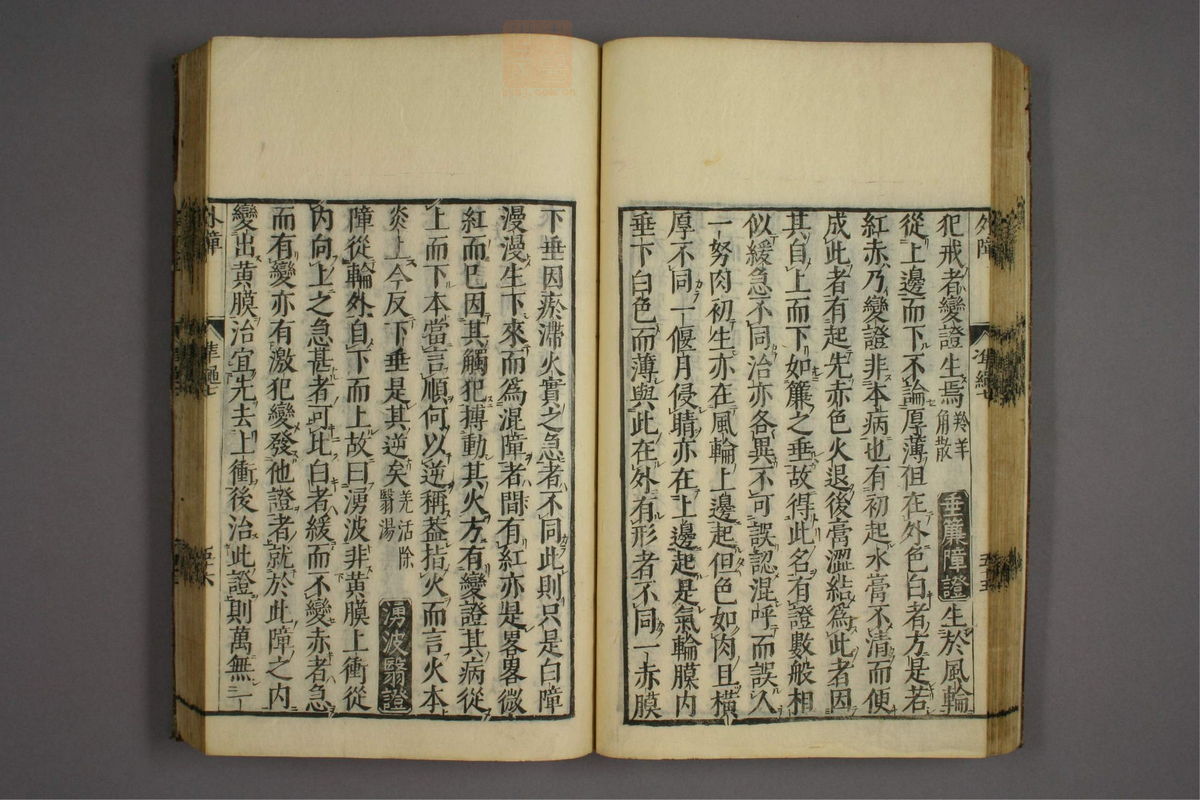 外障
準繩七
五十五
犯戒者變證生焉羚羊角散垂簾障證生於風輪
從上邊而下不論厚薄但在外色白者方是若
紅赤乃變證非本病也有初起水膏不清而便
成此者有起先赤色火退後膏澀結爲此者因
其自上而下如簾之垂故得此名有證數般相
似緩急不同治亦各異不可誤認混呼而誤人
一努肉初生亦在風輪上邊起但色如肉且橫
厚不同一偃月侵睛亦在上邊起是氣輪膜內
垂下白色而薄與此在外有形者不同一赤膜
下垂因瘀滯火實之急者不同此則只是白障
漫漫生下來而爲混障者間有紅亦是畧畧微
紅而已因其觸犯搏動其火方有變證其病從
上而下本當言順何以逆稱蓋指火而言火本
炎上今反下垂是其逆矣羌活除翳湯湧波翳證
障從輪外自下而上故曰湧波非黃膜上衝從
內向上之急甚者可比白者緩而不變赤者急
而有變亦有激犯變發他證者就於此障之內
變出黃膜治宜先去上衝後治此證則萬無一
外障
準繩七
五十六